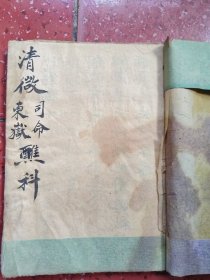 清微
司命
東嶽
醮科